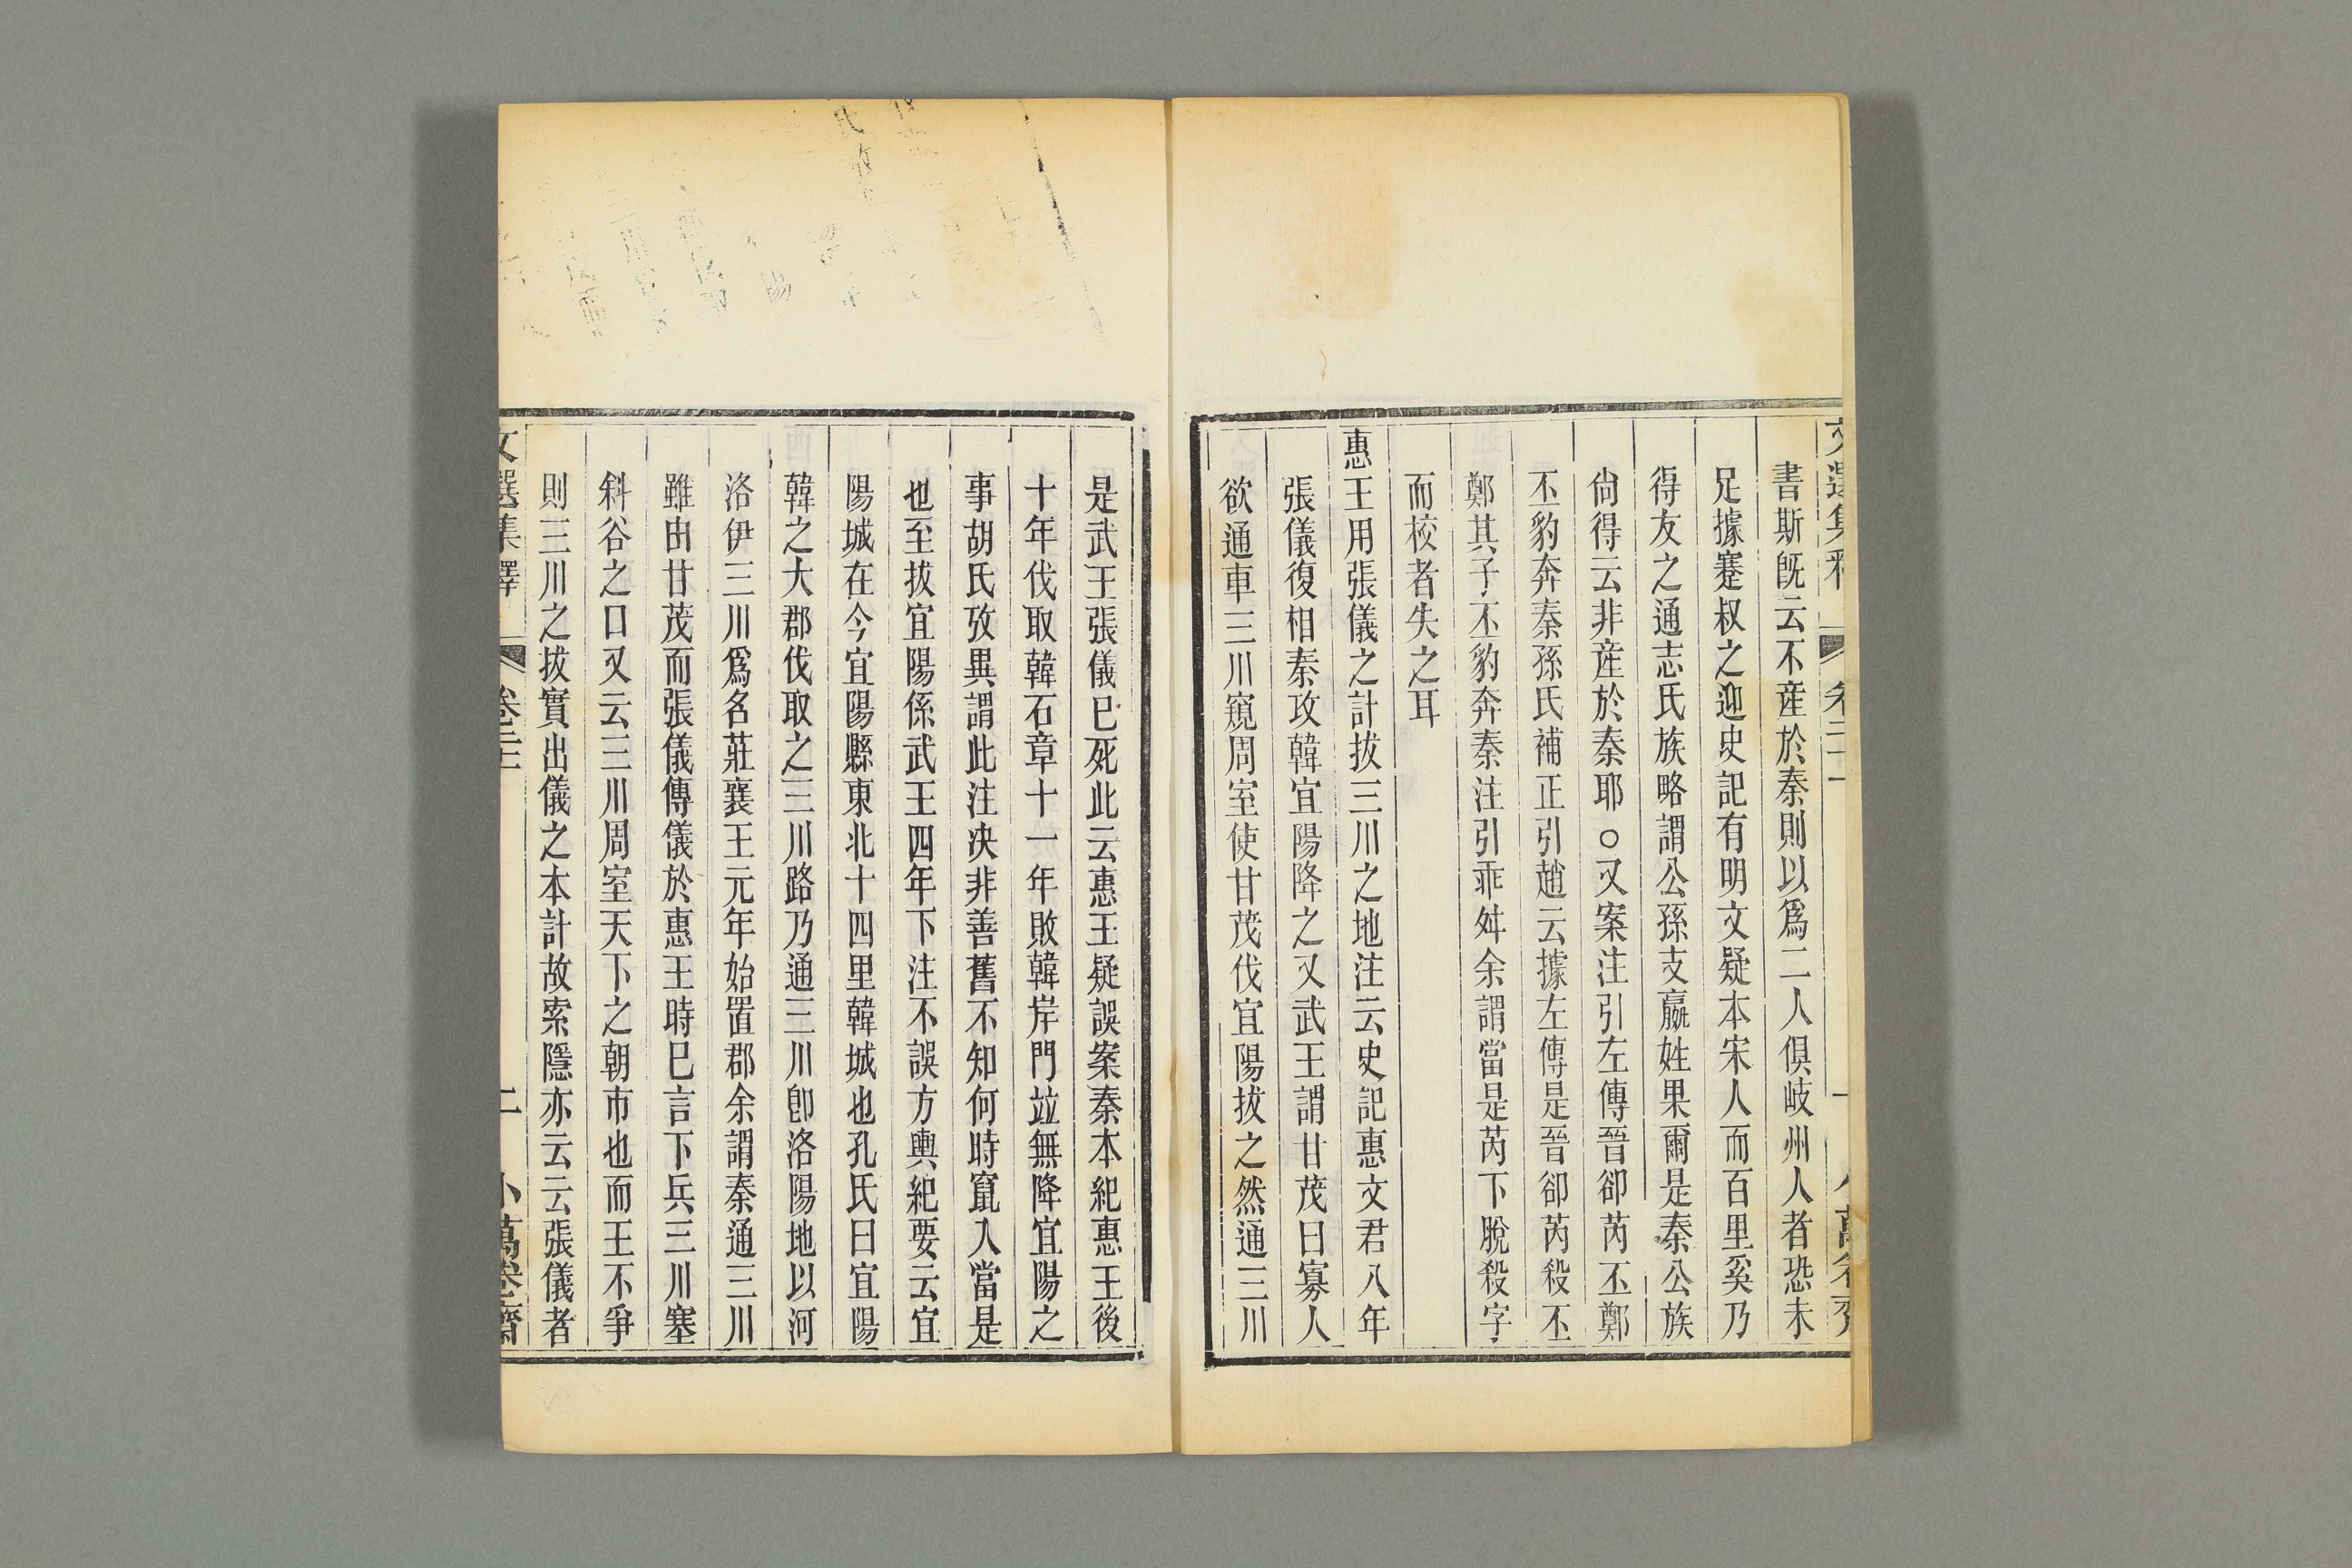 書斯旣云不產於秦則以爲二人俱岐州人者恐未
足據蹇叔之迎史記有明文疑本宋人而百里奚乃
得友之通志氏族略謂公孫支嬴姓果爾是秦公族
尙得云非產於秦耶○又案注引左傳晉卻芮丕鄭
丕豹奔秦孫氏補正引趙云據左傳是晉卻芮殺丕
鄭其子丕豹奔秦注引乖舛余謂當是芮下脫殺字
而校者失之耳
惠王用張儀之計拔三川之地注云史記惠文君八年
張儀復相秦攻韓宜陽降之又武王謂甘茂曰寡人
欲通車三川窺周室使甘茂伐宜陽拔之然通三川
是武王張儀已死此云惠王疑誤案秦本紀惠王後
十年伐取韓石章十一年敗韓岸門竝無降宜陽之
事胡氏攷異謂此注決非善舊不知何時竄入當是
也至拔宜陽係武王四年下注不誤方輿紀要云宜
陽城在今宜陽縣東北十四里韓城也孔氏曰宜陽
韓之大郡伐取之三川路乃通三川卽洛陽地以河
洛伊三川爲名莊襄王元年始置郡余謂秦通三川
雖由甘茂而張儀傳儀於惠王時已言下兵三川塞
斜谷之口又云三川周室天下之朝市也而王不爭
則三川之拔實出儀之本計故索隱亦云云張儀者
文選集釋 卷二十 二 小萬卷齋